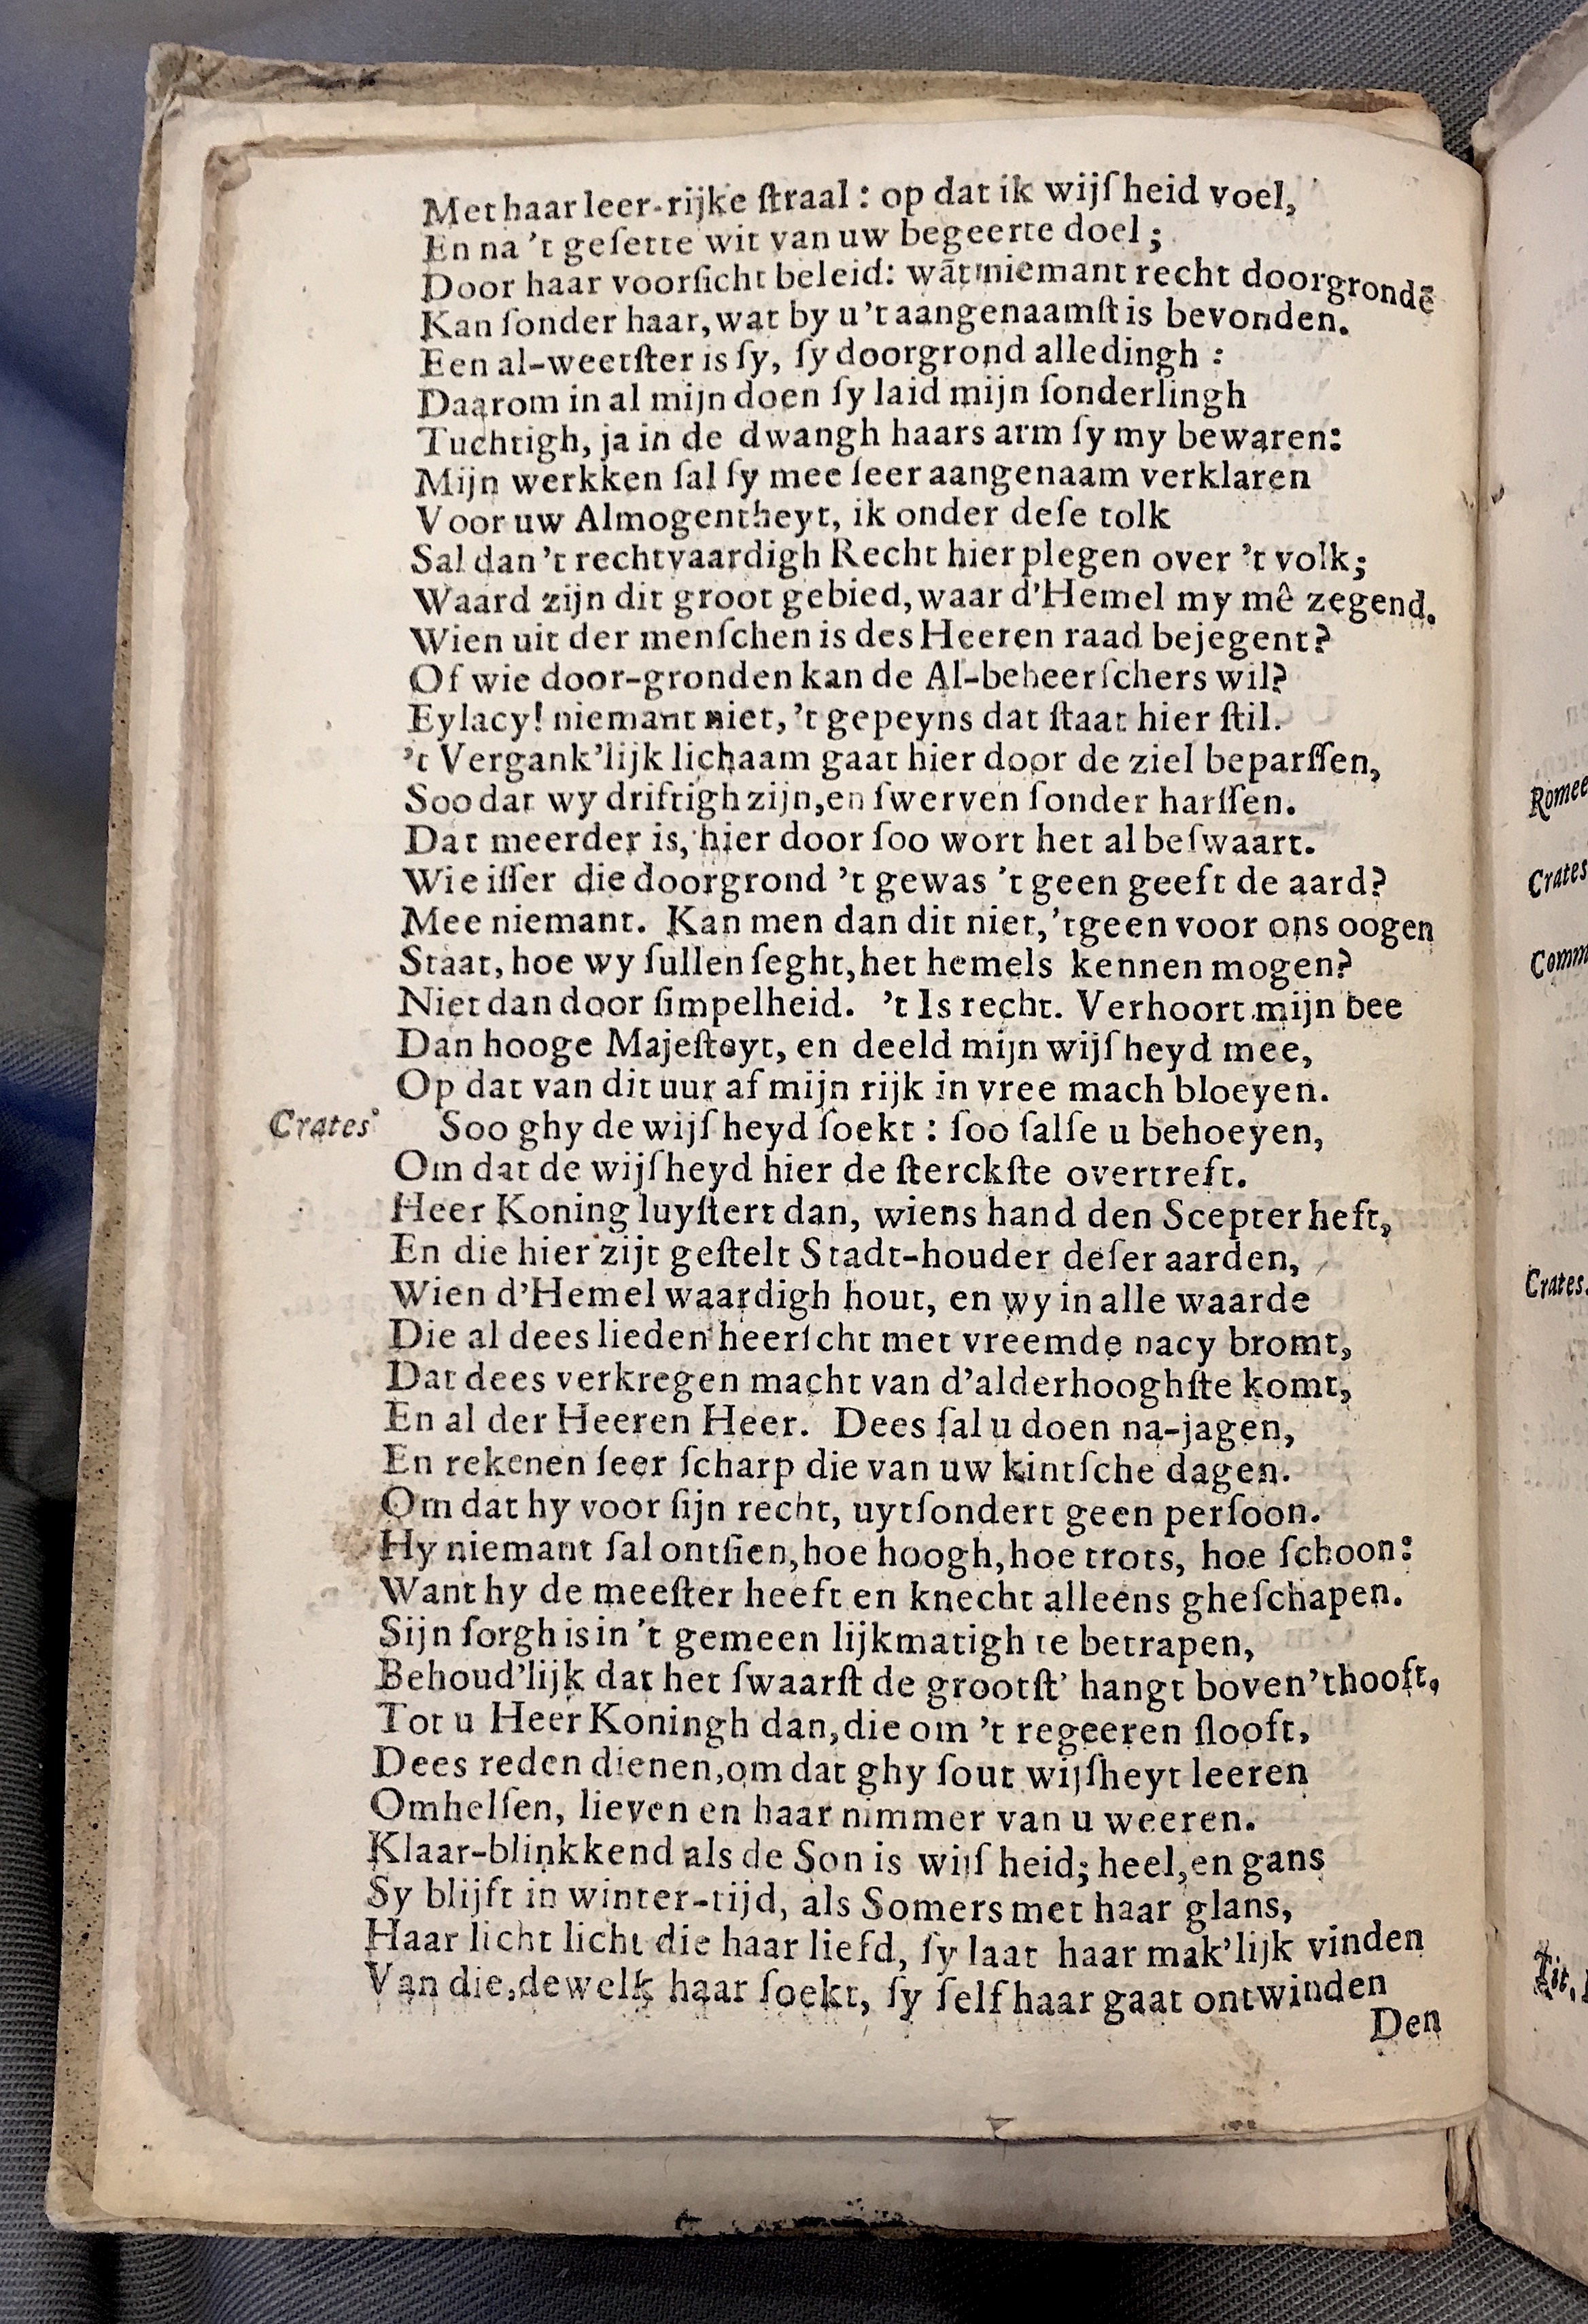 Met haar leer-rijke ſtraal: op dat ik wijſheid voel,
En na 't geſette wit van uw begeerte doel;
Door haar voorſicht beleid: wāt niemant recht doorgrondē
Kan ſonder haar, wat by u 't aangenaamſt is bevonden.
Een al-weetſter is ſy, ſy doorgrond alledingh:
Daarom in al mijn doen ſy laid mijn ſonderlingh
Tuchtigh, ja in de dwangh haars arm ſy my bewaren:
Mijn werkken ſal ſy mee ſeer aangenaam verklaren
Voor uw Almogentheyt, ik onder deſe tolk
Sal dan 't rechtvaardigh Recht hier plegen over 't volk;
Waard zijn dit groot gebied, waar d'Hemel my mê zegend.
Wien uit der menſchen is des Heeren raad bejegent?
Of wie door-gronden kan de Al-beheerſchers wil?
Eylacy! niemant niet, 't gepeyns dat ſtaat hier ſtil.
't Vergank'lijk lichaam gaat hier door de ziel beparſſen,
Soo dat wy driftigh zijn, en ſwerven ſonder harſſen.
Dat meerder is, hier door ſoo wort het al beſwaart.
Wie iſſer die doorgrond 't gewas 't geen geeft de aard?
Mee niemant. Kan men dan dit niet, 't geen voor ons oogen
Staat, hoe wy ſullen ſeght, het hemels kennen mogen?
Niet dan door ſimpelheid. 't Is recht. Verhoort mijn bee
Dan hooge Majeſteyt, en deeld mijn wijſheyd mee,
Op dat van dit uur af mijn rijk in vree mach bloeyen.
Crates Soo ghy de wijſheyd ſoekt: ſoo ſalſe u behoeyen,
Om dat de wijſheyd hier de ſterckſte overtreft.
Heer Koning luyſtert dan, wiens hand den Scepter heft,
En die hier zijt geſtelt Stadt-houder deſer aarden,
Wien d'Hemel waardigh hout, en wy in alle waarde
Die al dees lieden heerſcht met vreemde nacy bromt,
Dat dees verkregen macht van d'alderhooghſte komt,
En al der Heeren Heer. Dees ſal u doen na-jagen,
En rekenen ſeer ſcharp die van uw kintſche dagen.
Om dat hy voor ſijn recht, uytſondert geen perſoon.
Hy niemant ſal ontſien, hoe hoogh, hoe trots, hoe ſchoon:
Want hy de meeſter heeft en knecht alleens gheſchapen.
Sijn ſorgh is in 't gemeen lijkmatigh te betrapen,
Behoud'lijk dat het ſwaarſt de grootſt' hangt boven 't hooft,
Tot u Heer Koningh dan, die om 't regeeren ſlooft,
Dees reden dienen, om dat ghy ſout wijſheyt leeren
Omhelſen, lieven en haar nimmer van u weeren.
Klaar-blinkkend als de Son is wijſheid; heel, en gans
Sy blijft in winter-tijd, als Somers met haar glans,
Haar licht licht die haar liefd, ſy laat haar mak'lijk vinden
Van die, dewelk haar ſoekt, ſy ſelf haar gaat ontwinden
Den
Romee
Crates
Comm
Crates.
Tit.